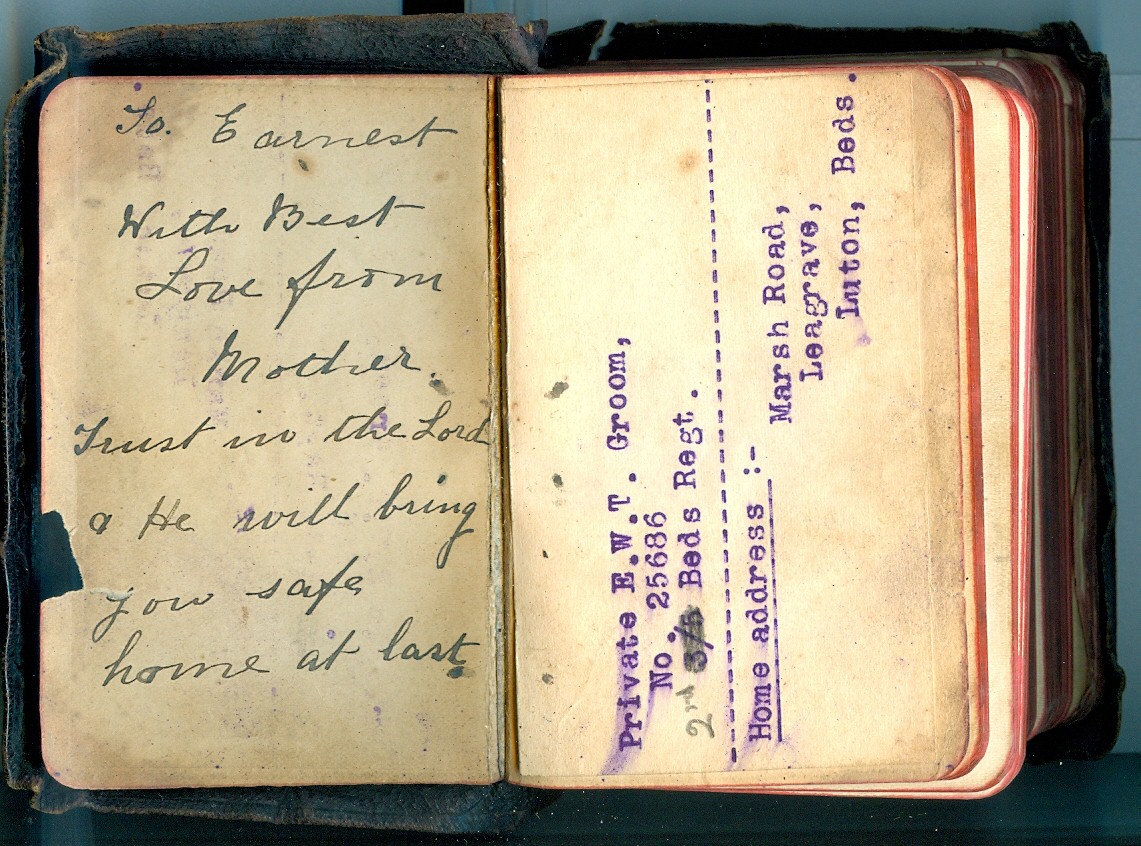 To. Earnest
With Best
Love from
Mother.
Trust in the Lord
& He will bring
you safe
home at last.
Private E.W.T. Groom,
No. 25686
2nd Beds Regt.
Home address :-
Marsh Road,
Leagrave,
Luton, Beds.